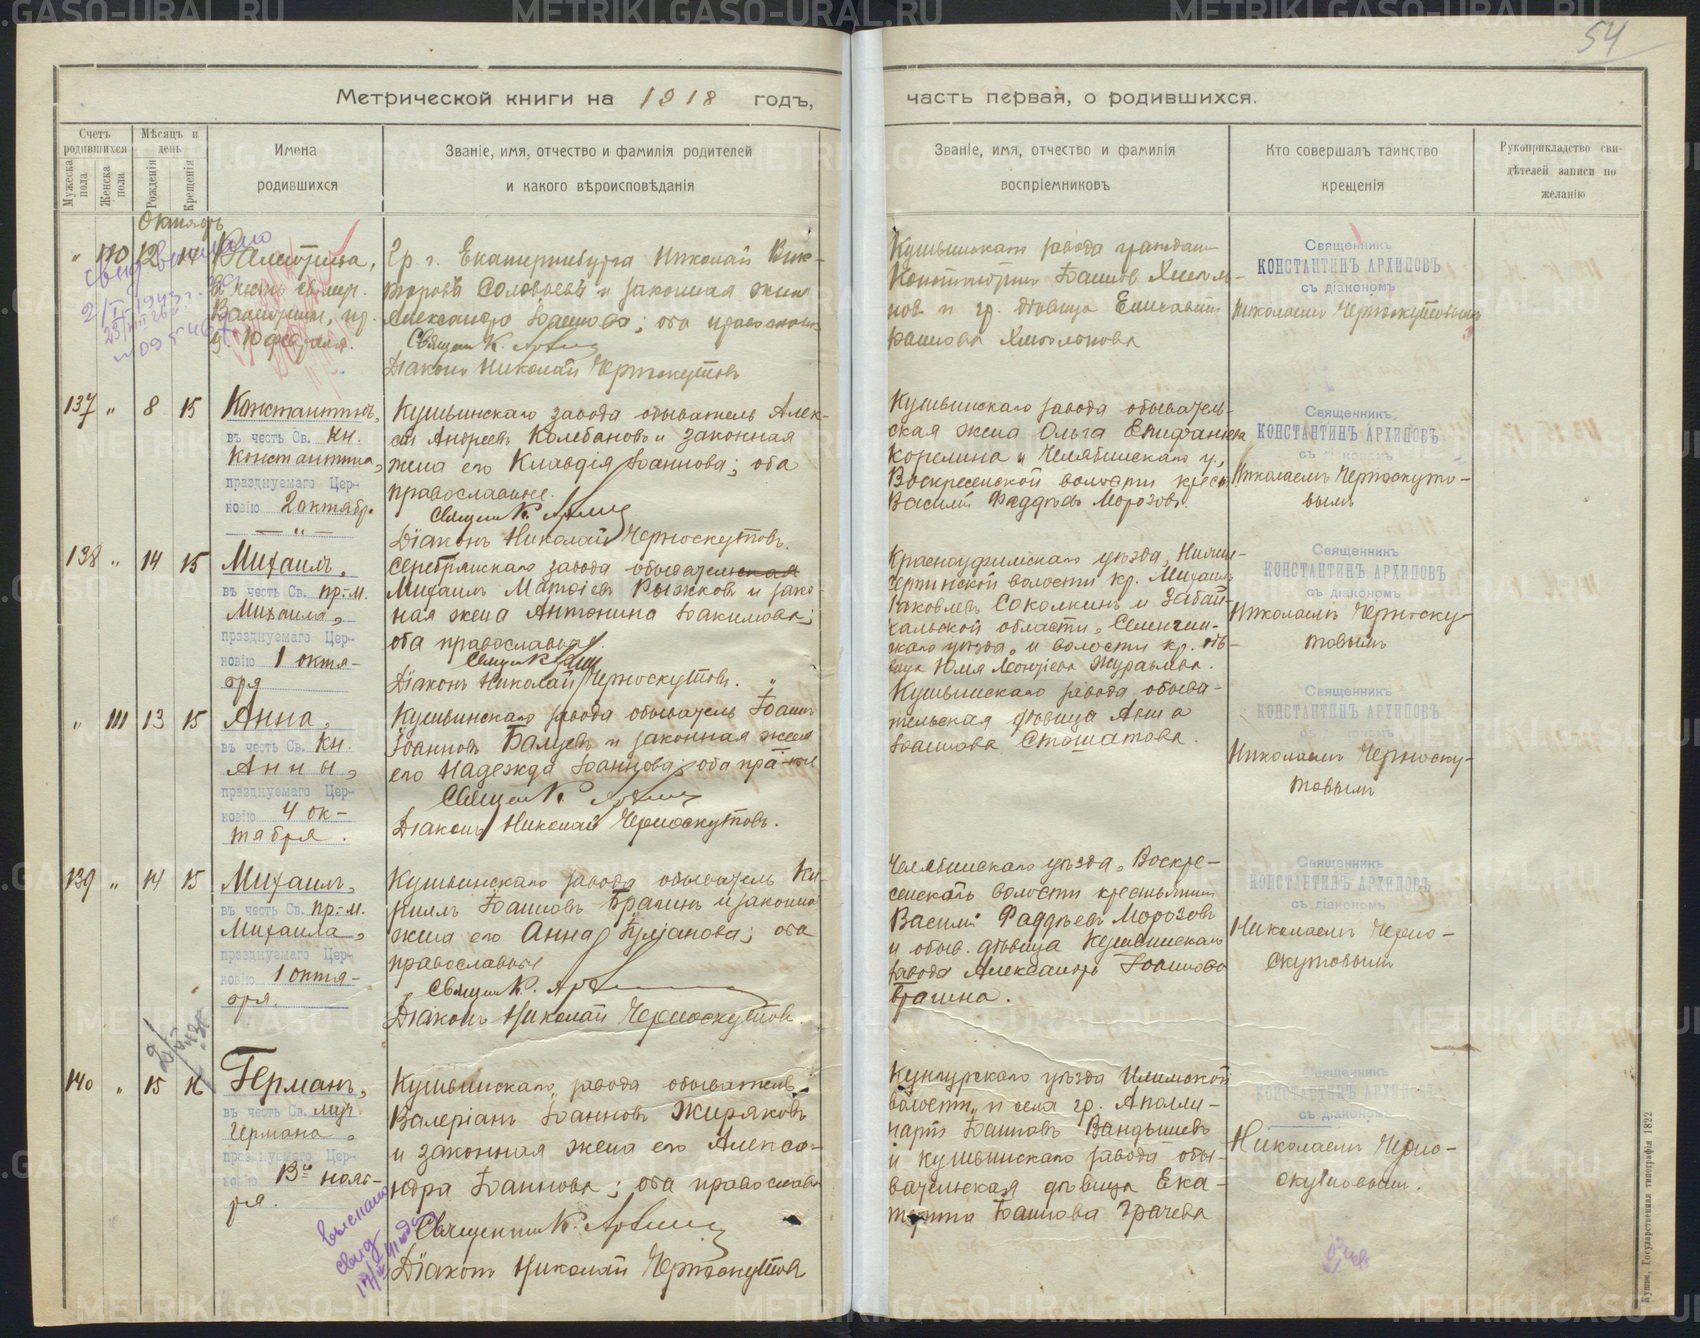 54
Метрической книги на 1918 годъ,
часть первая, о родившихся.
Счетъ родившихся
Мѣсяцъ и день
Мужеска пола
Женска пола
Рожденія
Крещенія
Имена
родившихся
Званіе, имя, отчество и фамилія родителей
и какого вѣроисповѣданія
Званіе, имя, отчество и фамилія
воспріемниковъ
Кто совершалъ таинство
крещенія
Рукоприкладство сви-
дѣтелей записи по
желанію
Октябрь
" 110 12 14
Валентина,
10 февраля.
Гр. г. Екатеринбурга Николай Вик-
торовъ Соловьевъ и законная жена
Александра Іоаннова; оба православны
Священ К.
Діаконъ Николай Черноскутовъ
Кушвинскаго завода граждан
Константинъ Іоанновъ Хмель-
новъ и гр. дѣвица Елисавета
Священникъ
КОНСТАНТИНЪ АРХИПОВЪ
съ діакономъ
Николаемъ Черноскутовымъ
137 " 8 15
Константинъ,
въ честь Св. Кн.
Константина,
празднуемаго Цер-
ковію 2 октября
Кушвинскаго завода обыватель Алек-
сѣй Андреевъ Колебановъ и законная
жена его Клавдія Іоаннова; оба
православные.
Священ К.
Діаконъ Николай Черноскутовъ.
Кушвинскаго завода обыватель-
ская жена Ольга Епифанiева
Корелина и Челябинскаго у.,
Воскресенской волости крест.
Василій Фаддѣевъ Морозовъ.
Священникъ
КОНСТАНТИНЪ АРХИПОВЪ
съ діакономъ
Николаемъ Черноскуто-
вымъ
138 " 14 15
Михаилъ,
въ честь Св. пр.-м.
Михаила,
празднуемаго Цер-
ковію 1 октя-
бря
Серебрянскаго завода обыватель
Михаилъ Матѳіевъ Рыжковъ и закон-
ная жена Антонина Іоакимова;
оба православные.
Священ К.
Діаконъ Николай Черноскутовъ.
Красноуфимскаго уѣзда,
волости кр. Михаилъ
Яковлевъ Соколкинъ и Забай-
кальской области, Селенгин-
скаго уѣзда, и волости кр. дѣ-
вица Юлія Леонтіева Журавлева.
Священникъ
КОНСТАНТИНЪ АРХИПОВЪ
съ діакономъ
Николаемъ Черноску-
товымъ
" 111 13 15
Анна,
въ честь Св. Кн.
Анны,
празднуемаго Цер-
ковію 4 ок-
тября.
Кушвинскаго завода обыватель Іоаннъ
Іоанновъ Балуевъ и законная жена
его Надежда Іоаннова; оба пра-ные
Священ К.
Діаконъ Николай Черноскутовъ.
Кушвинскаго завода обыва-
тельская дѣвица Анна
Іоаннова Стошатова.
Священникъ
КОНСТАНТИНЪ АРХИПОВЪ
съ діакономъ
Николаемъ Черноску-
товымъ
139 " 14 15
Михаилъ,
въ честь Св. пр.-м.
Михаила,
празднуемаго Цер-
ковію 1 октя-
бря.
Кушвинскаго завода обыватель Ки-
риллъ Іоанновъ Брагинъ и законная
жена его Анна; оба
православные
Священ К.
Діаконъ Николай Черноскутовъ.
Челябинскаго уѣзда, Воскре-
сенской волости крестьянинъ
Василій Фаддѣевъ Морозовъ
и обыв. дѣвица Кушвинскаго
завода Александра Іоаннова
Брагина.
Священникъ
КОНСТАНТИНЪ АРХИПОВЪ
съ діакономъ
Николаемъ Черно-
скутовымъ
140 " 15 16
Германъ,
въ честь Св. муч.
Германа,
празднуемаго Цер-
ковію 13го нояб-
ря.
Кушвинскаго завода обыватель
Валеріанъ Іоанновъ Жиряковъ
и законная жена его Алекса-
ндра Іоаннова; оба православн
Священникъ К.
Діаконъ Николай Черноскутовъ
Кунгурскаго уѣзда Илимской
волости, и села гр. Аполли-
нарій Іоанновъ Вандышевъ
и кушвинскаго завода обы-
вательская дѣвица Ека-
терина Іоаннова Грачева
Священникъ
КОНСТАНТИНЪ АРХИПОВЪ
съ діакономъ
Николаемъ Черно-
скутовымъ.
Кушва, Государственная типографія 1822
METRIKI.GASO-URAL.RU